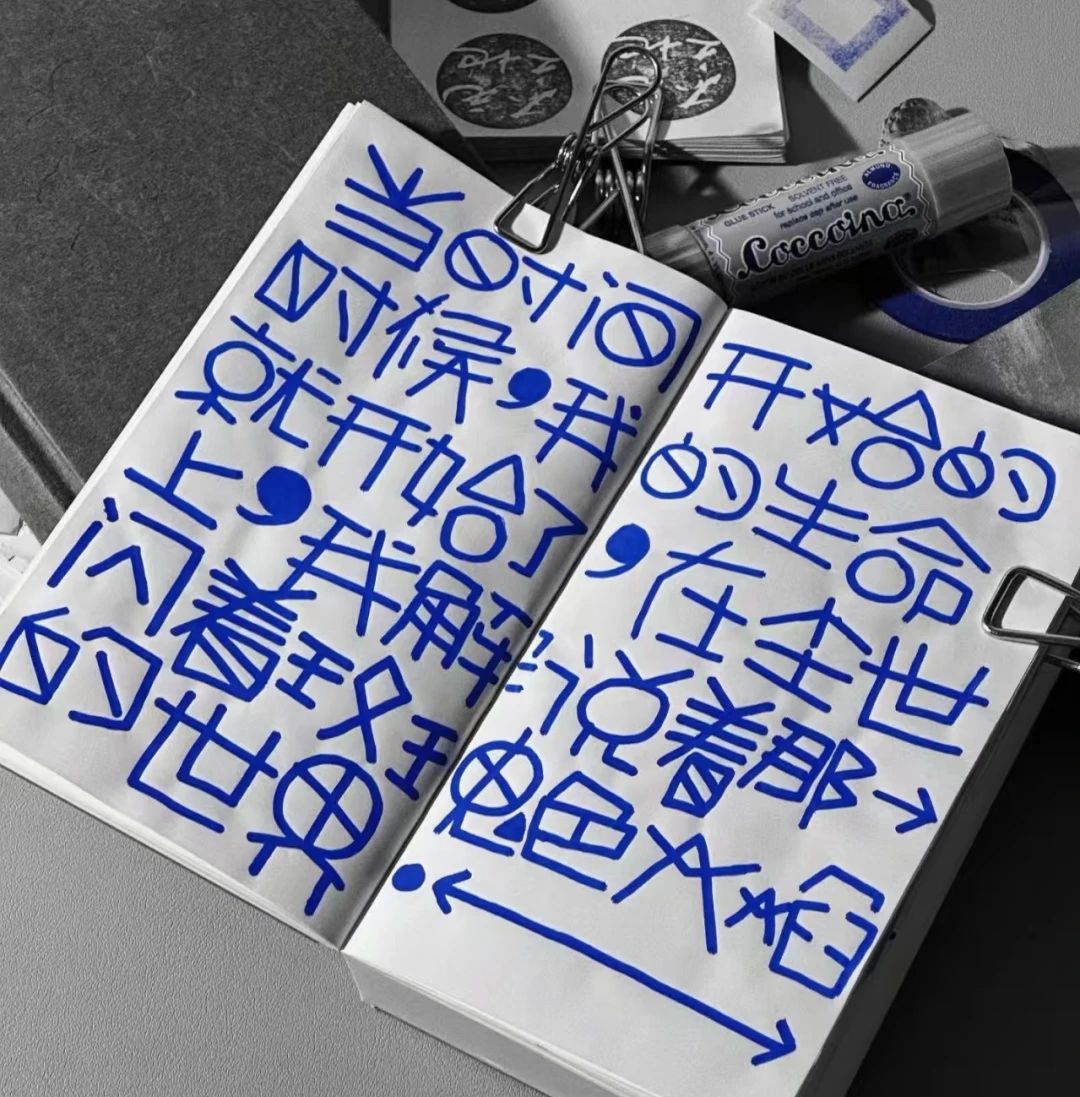 当时间
时候，我
就开始了
上，我解
闪着
的世界
开始的
的生命
，在全世
说着那→
色
SOLVENT FREE
GLUE STICK
for school and office
replace cap after use
Coccoina